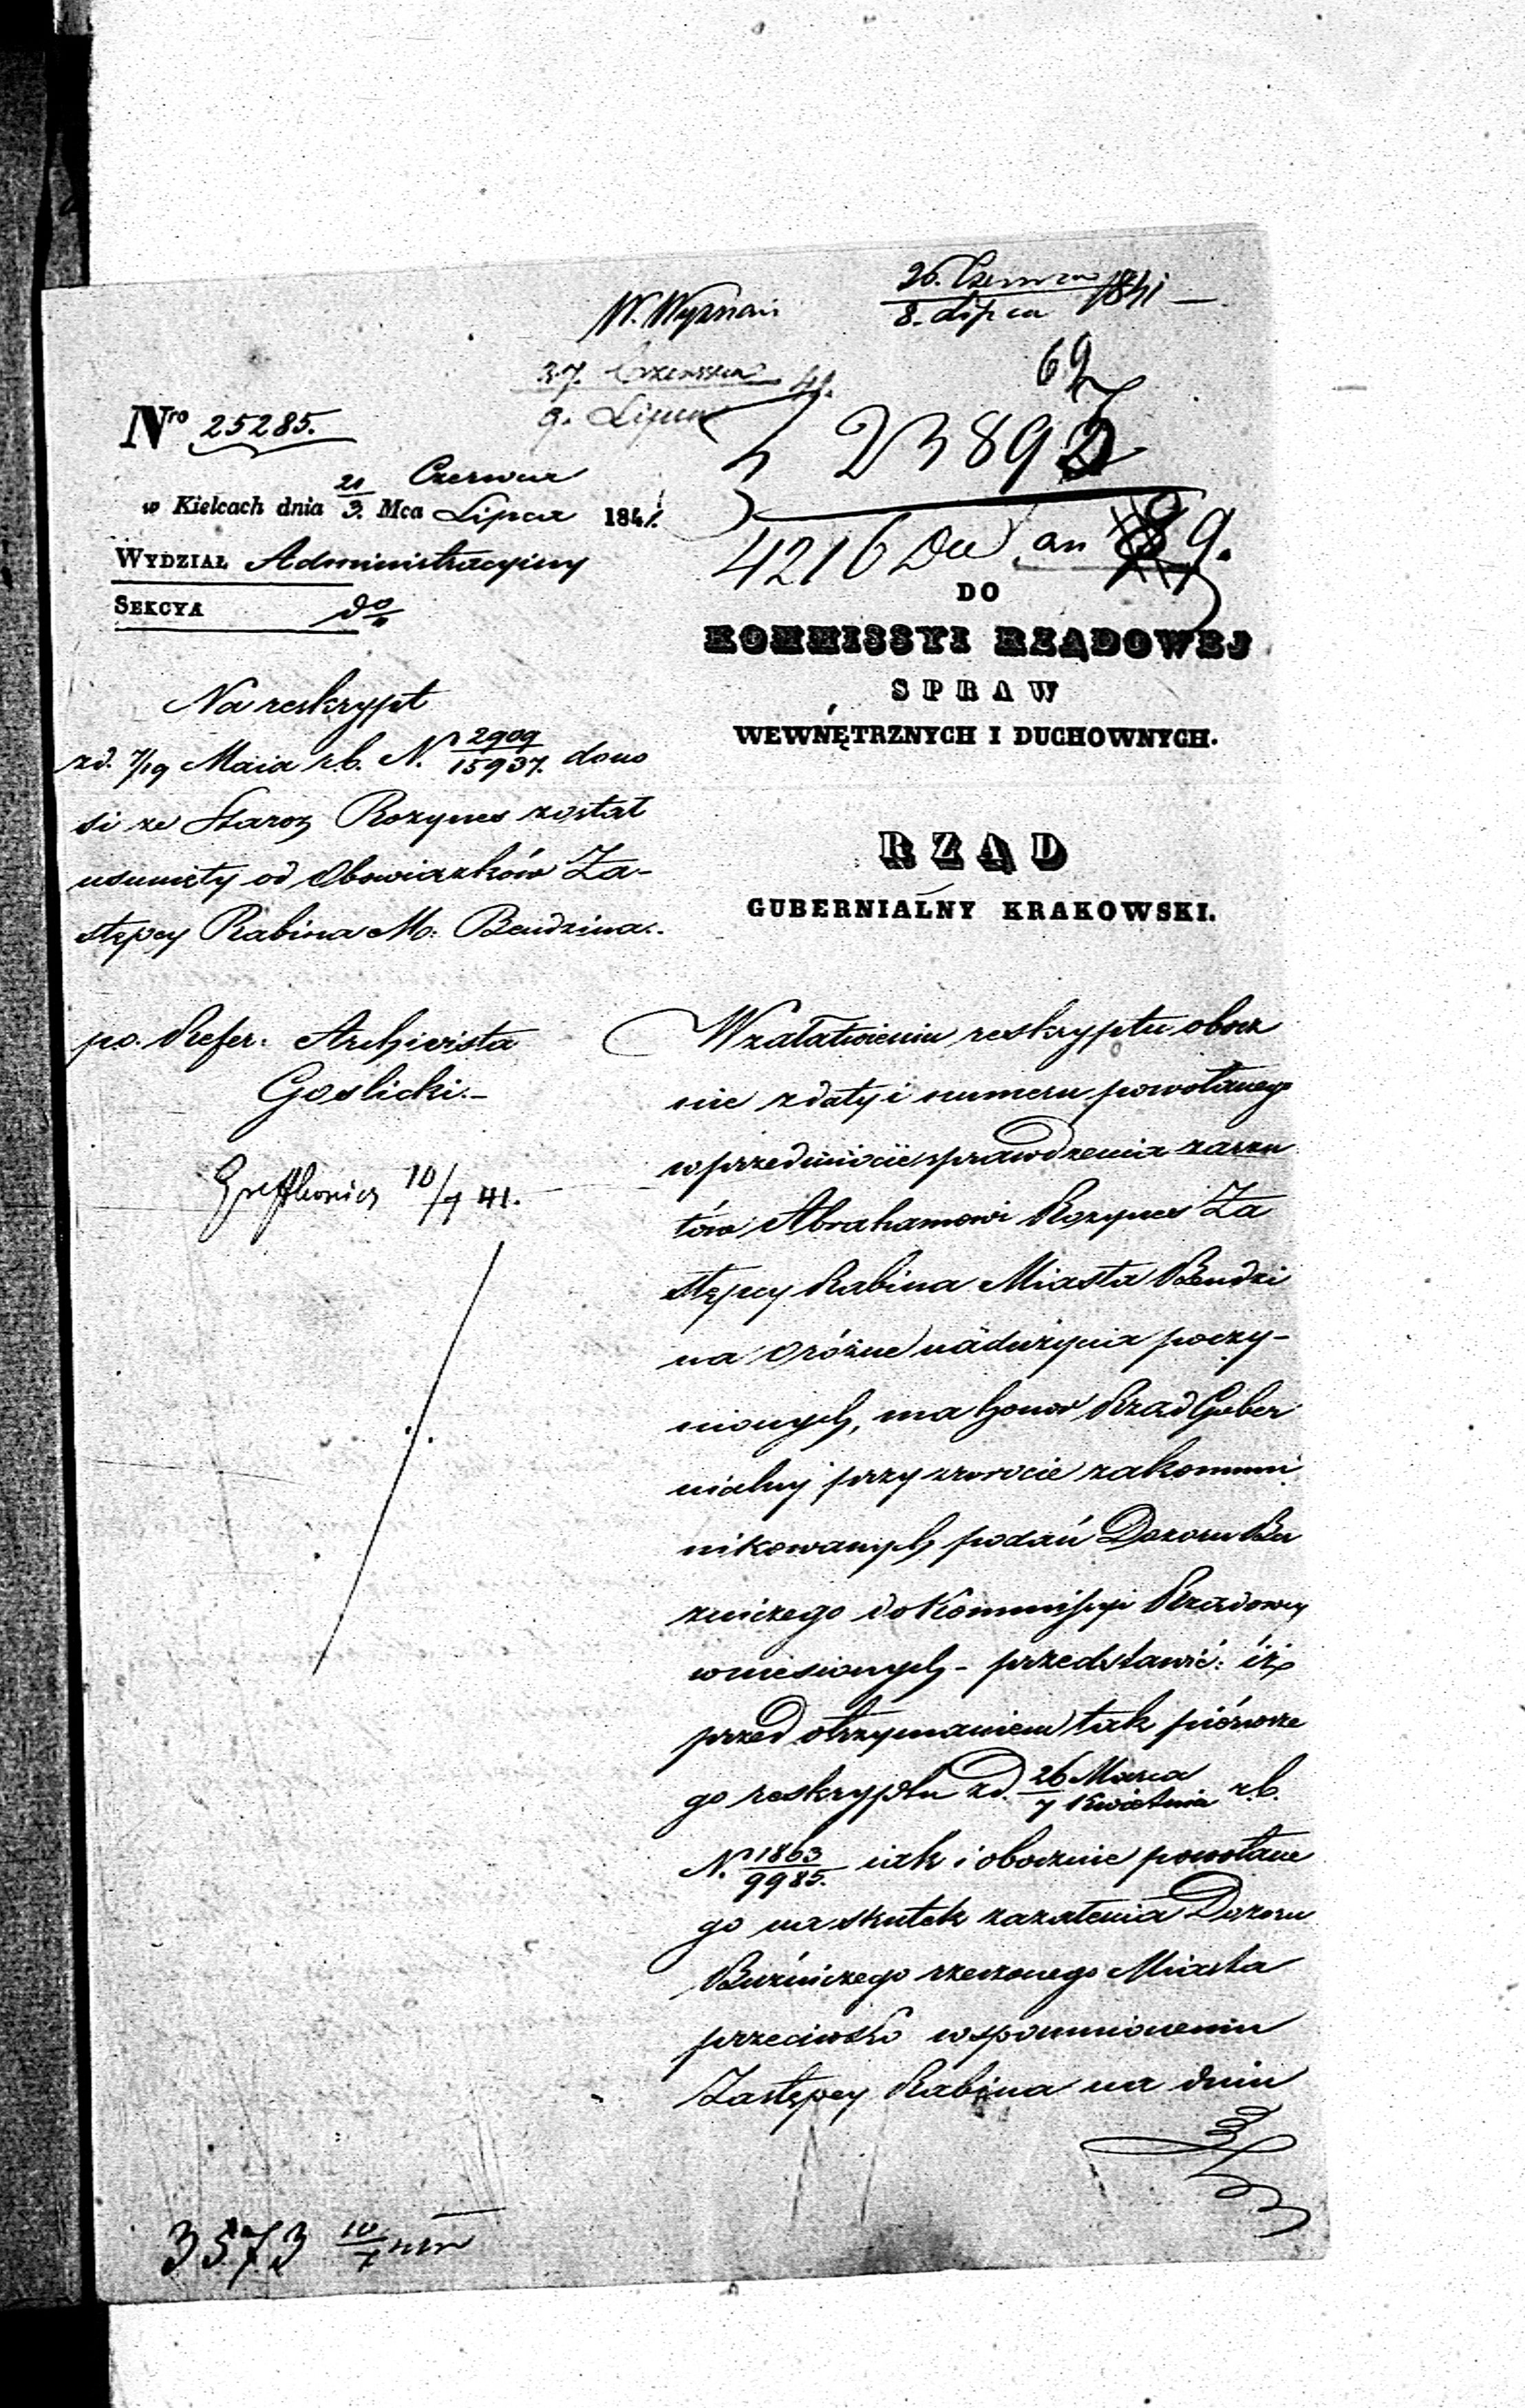 W. Wyznań
26. Czerwca
8. Lipca 1841
27. Czerwca
9. Lipca 41.
69
23893
4216 an 9.
Nro 25285.
w Kielcach dnia 21/3. Mca Czerwca Lipca 1841.
WYDZIAŁ Administracyjny
SEKCYA do
DO
KOMMISSYI RZĄDOWEJ
SPRAW
WEWNĘTRZNYCH I DUCHOWNYCH.
RZĄD
GUBERNIALNY KRAKOWSKI.
Na reskrypt
zd. 7/19 Maia r.b. N. 2909/15937. dono
si ze Staroz Rozynes został
usunięty od Obowiązków Za-
stępcy Rabina M. Bendzina.
po. Refer. Archivista
Goslicki.-
10/7 41.
W załatwieniu reskryptu obocz
nie z daty i numeru powołanego
w przedmiocie sprawdzenia zarzu
tów Abrahamowi Rozynes Za
stępcy Rabina Miasta Bendzi
na o różne nadużycia poczy-
nionych, ma honor Rząd Guber
nialny przy zwrocie zakommu
nikowanych podań Dozoru Bu
źniczego do Kommissyi Rządowey
wniesionych - przedstawić: iż
przed otrzymaniem tak piérwsze
go reskryptu zd. 26 Marca/7 Kwietnia r.b.
N. 1863/9985. iak i obocznie powołane
go na skutek zażalenia Dozoru
Buźniczego rzeczonego Miasta
przeciwko wspomnionemu
Zastępcy Rabina na dniu
3573 10/7